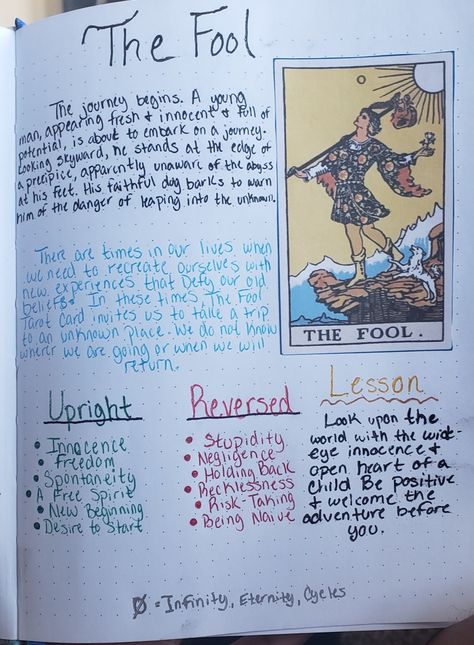 The Fool
The journey begins. A young
man, appearing fresh & innocent & full of
potential, is about to embark on a journey.
Looking skyward, he stands at the edge of
a precipice, apparently unaware of the abyss
at his feet. His faithful dog barks to warn
him of the danger of leaping into the unknown.
There are times in our lives when
we need to recreate ourselves with
new experiences that Defy our old
beliefs. In these times The Fool
Tarot Card invites us to take a trip
to an unknown place. We do not know
where we are going or when we will
return.
0
THE FOOL.
Upright
Innocence
Freedom
Spontaneity
A Free Spirit
New Beginning
Desire to Start
Reversed
Stupidity
Negligence
Holding Back
Recklessness
Risk-Taking
Being Naive
Lesson
Look upon the
world with the wide-
eye innocence &
open heart of a
child Be positive
& welcome the
adventure before
you.
0 = Infinity, Eternity, Cycles